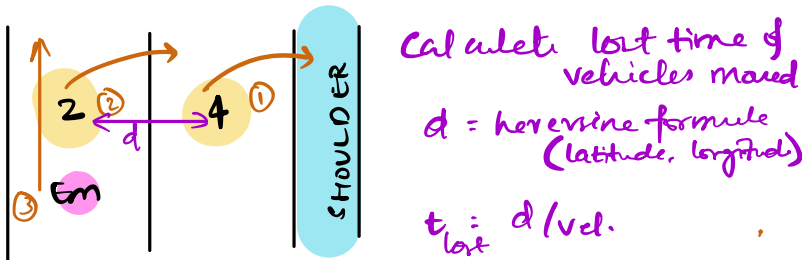 2
②
4
①
d
Em
③
SHOULDER
Calculate lost time of
vehicles moved
d = heversine formula
(latitude, longitude)
t lost = d/vel.